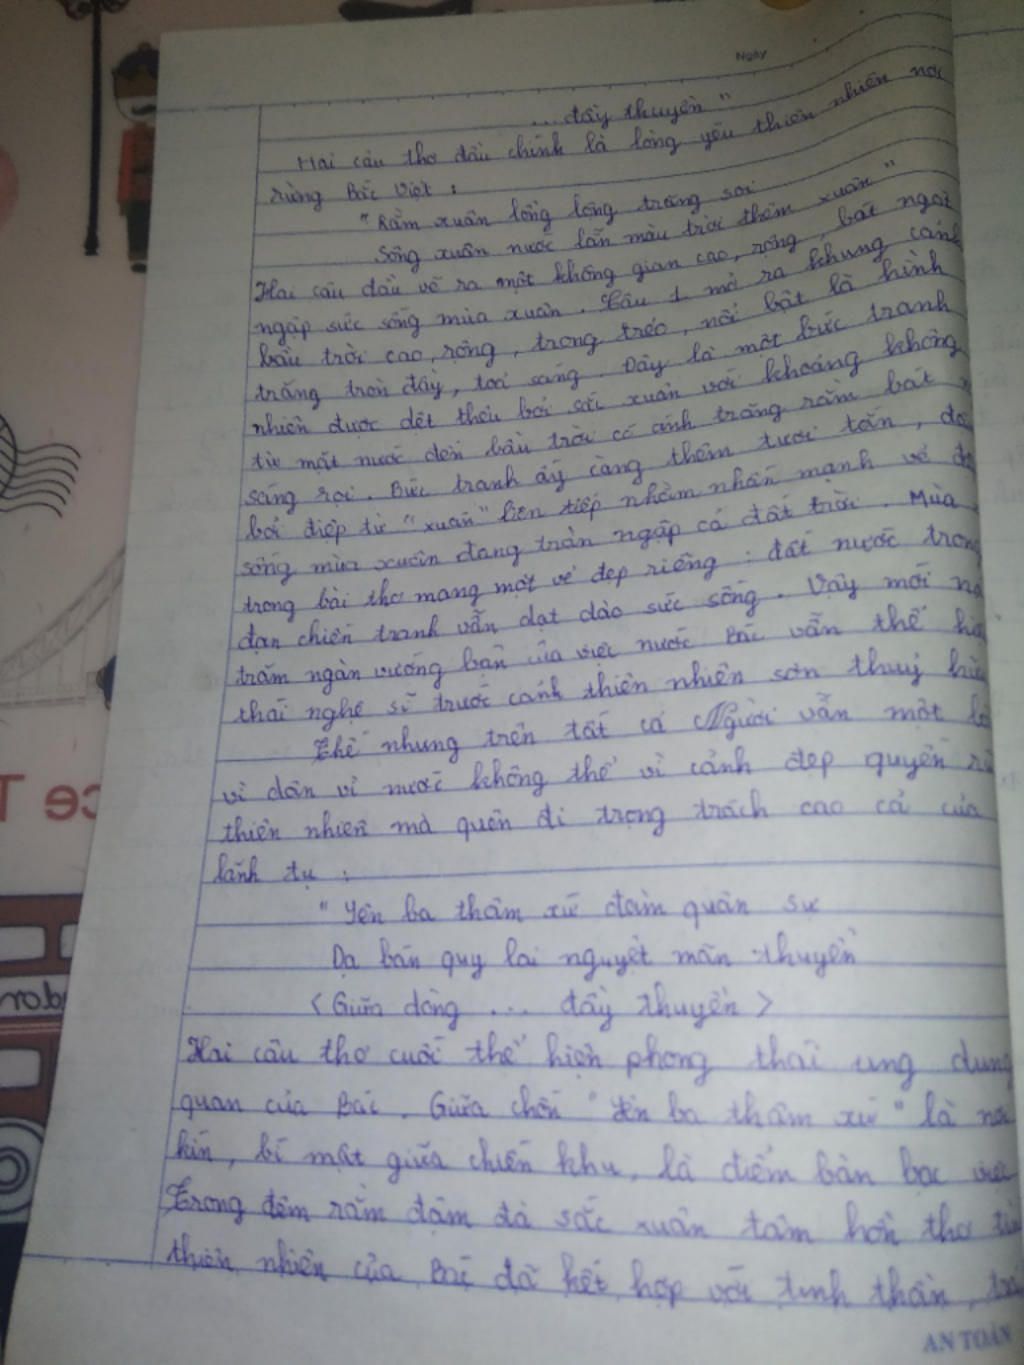 Ngày
... đầy thuyền"
Hai câu thơ đầu chính là lòng yêu thiên nhiên nơi
rừng Bắc Việt :
"Rằm xuân lồng lộng trăng soi
Sông xuân nước lẫn màu trời thêm xuân"
Hai câu đầu vẽ ra một không gian cao, rộng, bát ngát
ngập sức sống mùa xuân. Câu 1 mở ra khung cảnh
bầu trời cao, rộng, trong trẻo, nổi bật là hình
trăng tròn đầy, toả sáng. Đây là một bức tranh
nhiên được dệt thêu bởi sắc xuân với khoảng không
từ mặt nước đến bầu trời có ánh trăng rằm bát
sáng rọi. Bức tranh ấy càng thêm tươi tắn,
bởi điệp từ "xuân" liên tiếp nhằm nhấn mạnh vẻ
sống mùa xuân đang tràn ngập cả đất trời. Mùa
trong bài thơ mang một vẻ đẹp riêng : đất nước trong
đạn chiến tranh vẫn dạt dào sức sống. Vậy mới
trăm ngàn vướng bận của việc nước Bác vẫn thể
thái nghệ sĩ trước cảnh thiên nhiên sơn thuỷ
Thế nhưng trên tất cả Người vẫn một
vì dân vì nước không thể vì cảnh đẹp quyến
thiên nhiên mà quên đi trọng trách cao cả của
lãnh tụ :
"Yên ba thâm xứ đàm quân sự
Dạ bán quy lai nguyệt mãn thuyền
<Giữa dòng ... đầy thuyền>
Hai câu thơ cuối thể hiện phong thái ung dung
quan của Bác. Giữa chốn "Yên ba thâm xứ" là nơi
kín, bí mật giữa chiến khu, là điểm bàn bạc việc
Trong đêm rằm đậm đà sắc xuân tâm hồn thơ
thiên nhiên của Bác đã kết hợp với tinh thần,
AN TOÀN
ce T